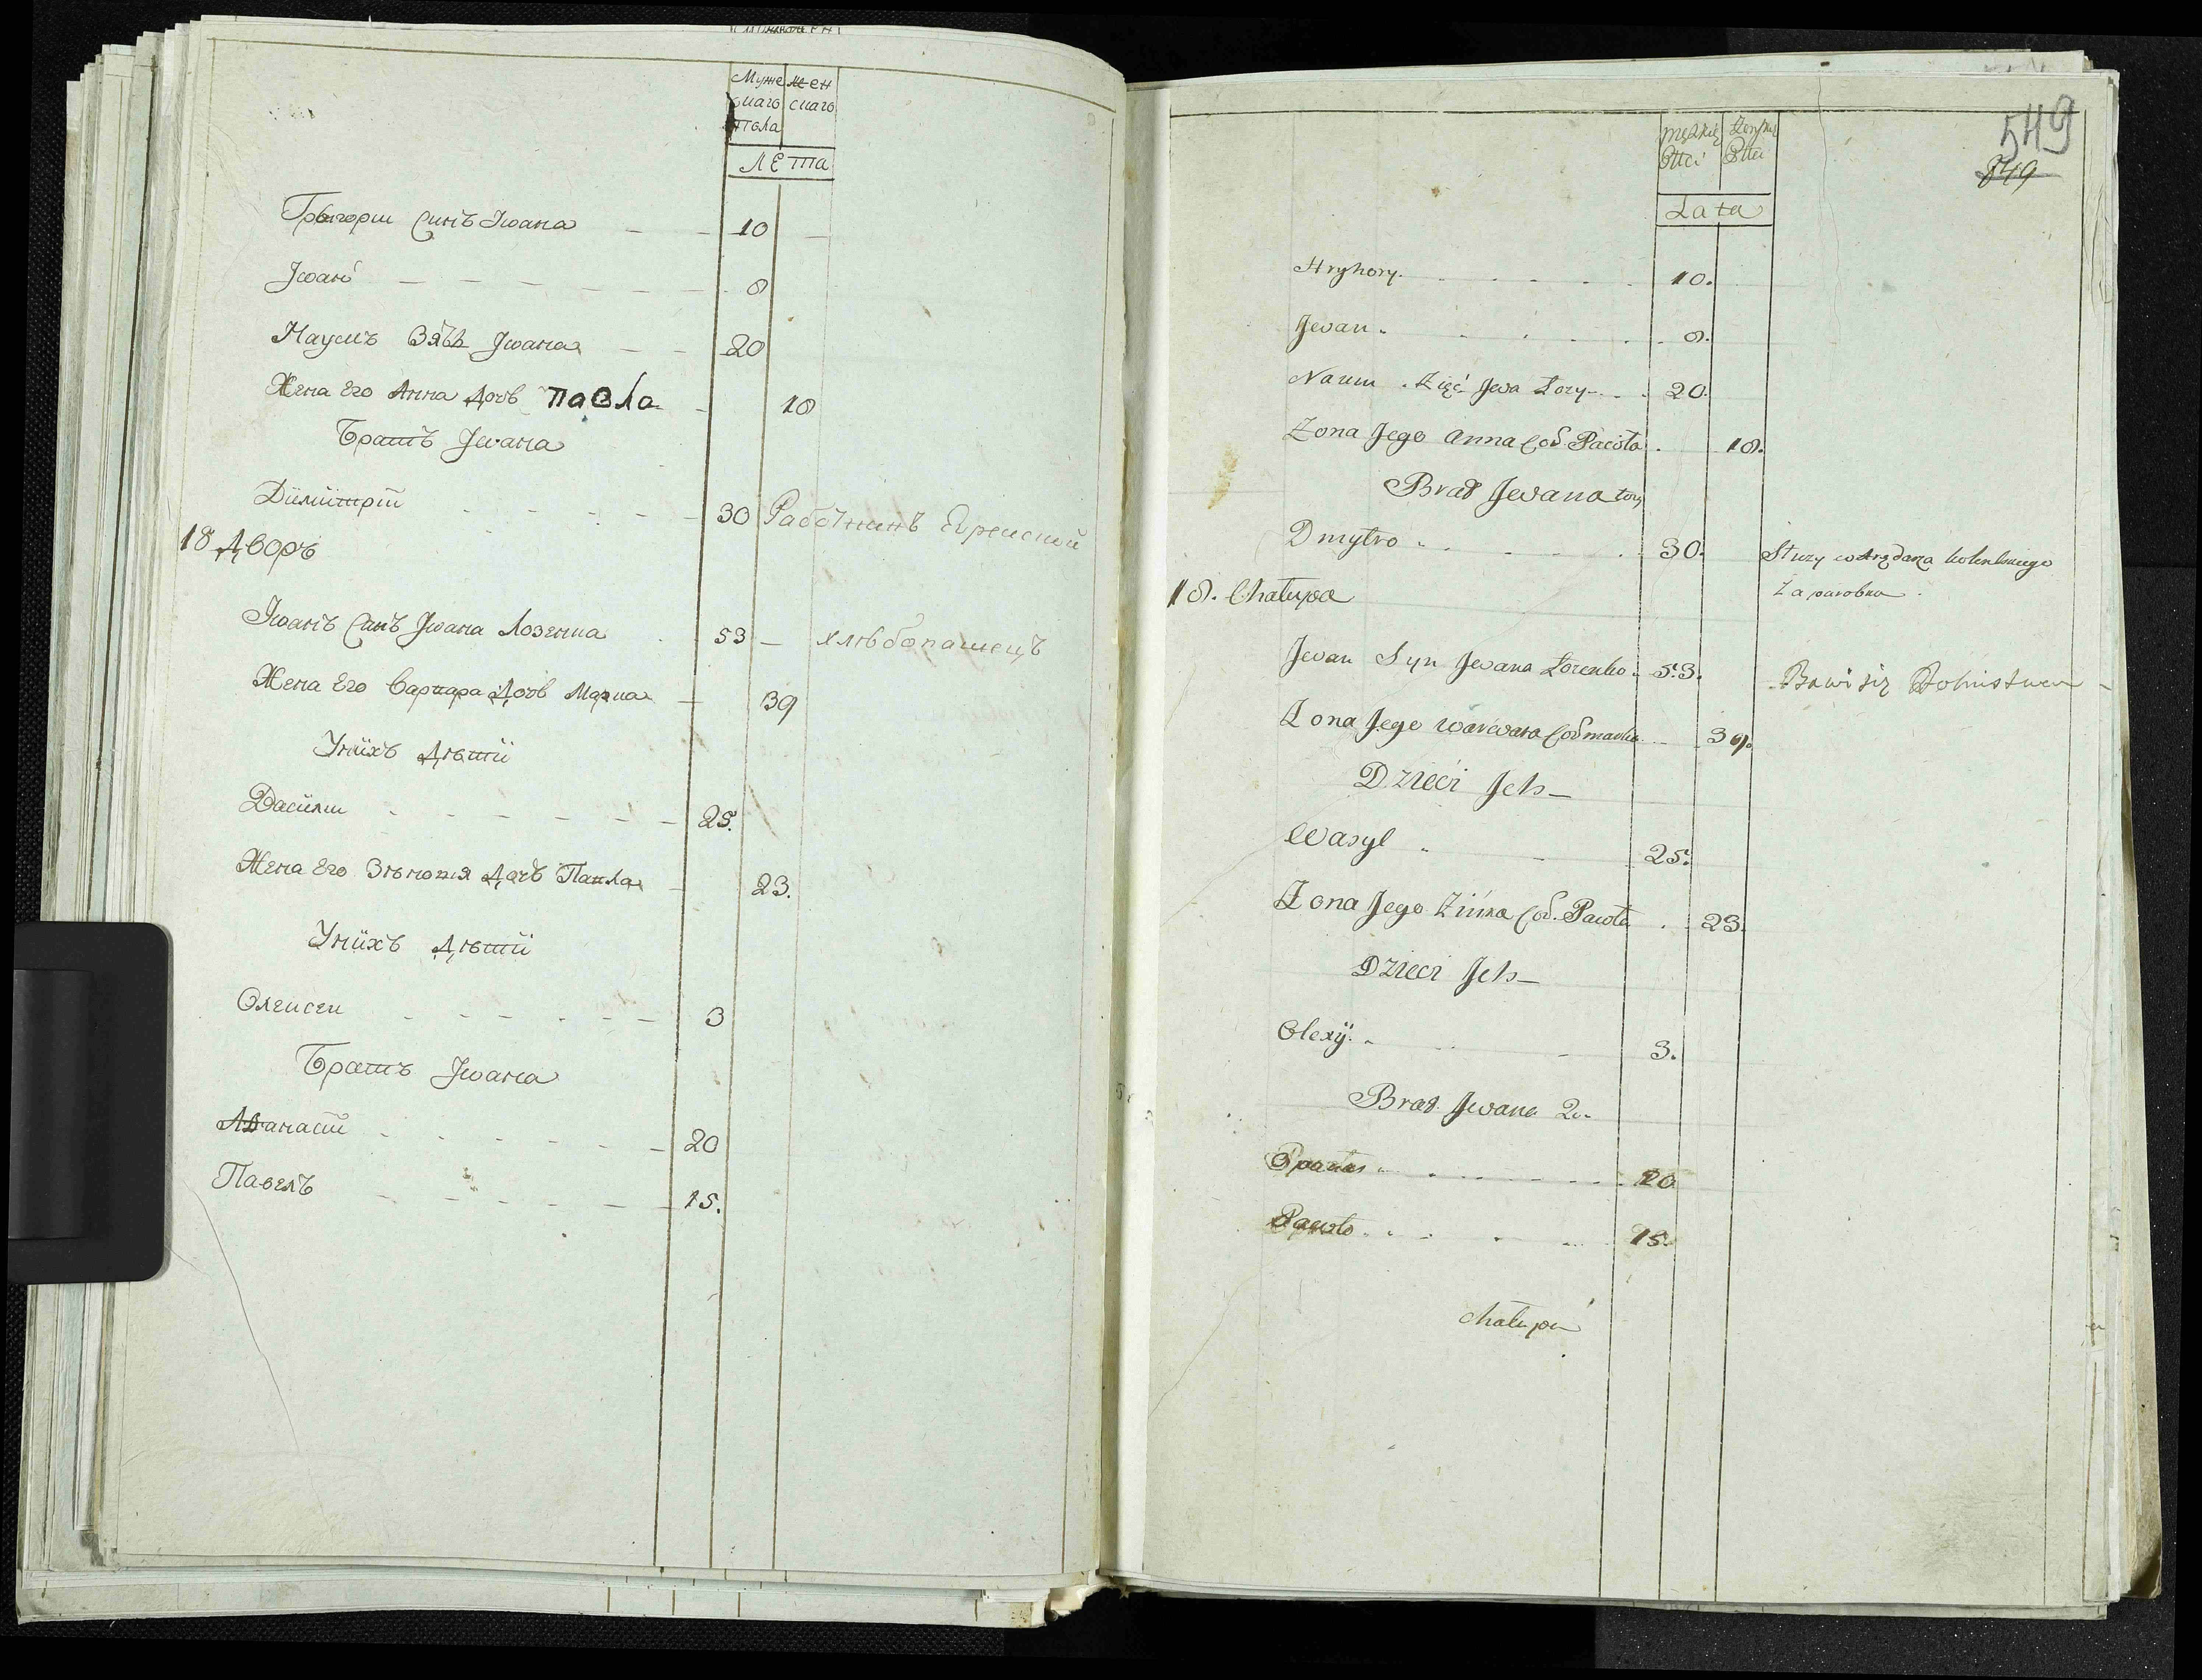 Муже Жен
скаго скаго
пола
ЛЕта
Григории Синъ Iвана 10
Iванъ 8
Наумъ Зять Iвана 20
Жена Его Анна Дочь Павла 18
Братъ Iвана
Димитри 30 Работникъ Еврейский
18 Дворъ
Iванъ Синъ Iвана Лозенка 53 хлѣбопашецъ
Жена Его Варвара Дочь Марка 39
Унихъ Дѣти
Васили 25.
Жена Его Зѣновия Дочь Павла 23.
Унихъ Дѣти
Олексеи 3
Братъ Iвана
Афанаси 20
Павелъ 15.
549
849
męzkiey Żeńskiey
Płtci Płtci
Lata
Hryhory. 10.
Jwan. 8.
Naum. Zięć Jwa Łozy 20.
Żona Jego Anna Cod. Pawła. 18.
Brat Jwana
Dmytro 30. Służy
18. Chałupa za parobka.
Jwan Syn Jwana Łozenko. 53. Bawi się Rolnistwem
Żona Jego Warwara Cod Marka 39.
Dzieci Jch
Wasyl 25.
Żona Jego Zinka Cod. Pawła 23.
Dzieci Jch
Olexÿ. 3.
Brat Jwana 2.
Opanas 20
Pawło 15.
chałupa